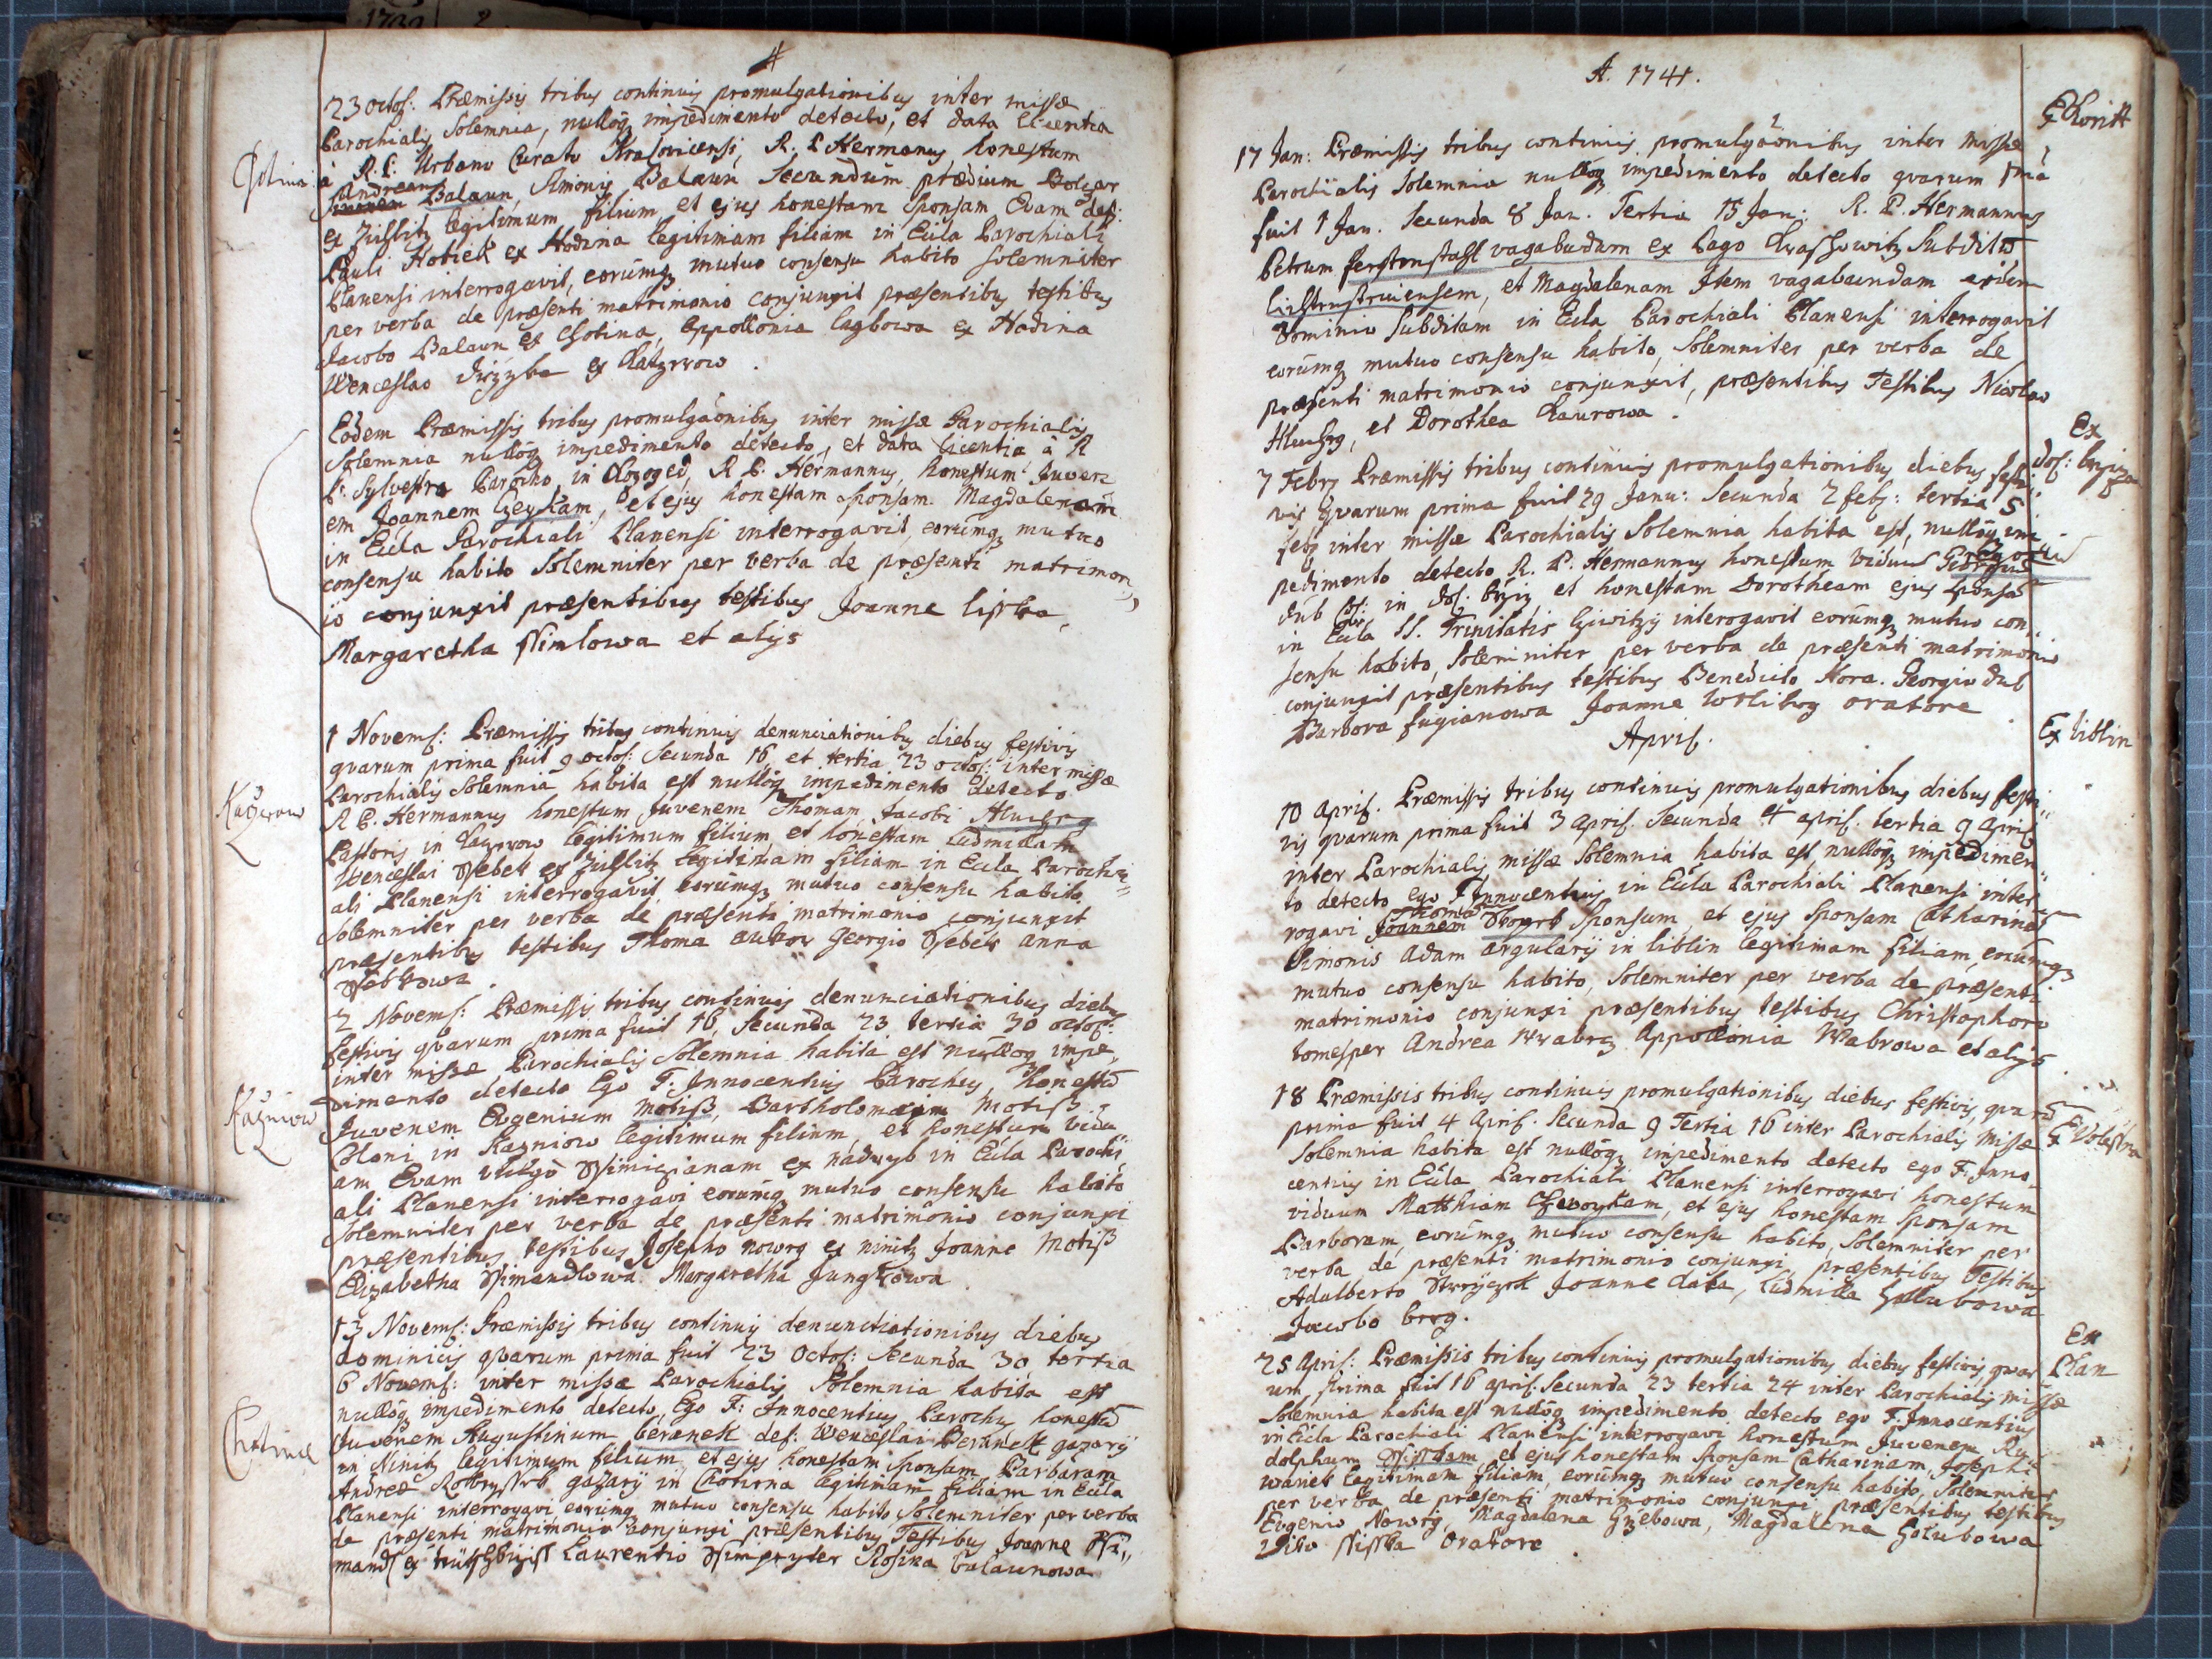 1739 2
#
23 octob: Præmissis tribus continuis promulgationibus inter missæ
Parochialis Solemnia, nulloq impedimento detecto, et data licentia
Chotina
à R. P. Urbano Curato Kralovicensi, R. P. Hermanus honestum
Andream
Balaun, Simonis Balaun Secundum prædium
ex legitimum filium et ejus honestam Sponsam Evam def:
Pauli Hotiek ex Hodina legitimam filiam in Ecla Parochiali
Planensi interrogavit, eorumq mutuo consensu habito solemniter
per verba de præsenti matrimonio conjunxit præsentibus testibus
Jacobo Balaun ex Chotina, Appollonia ex Hadina
Wenceslao ex
Eodem Præmissis tribus promulgaonibus inter missæ Parochialis
Solemnia nulloq impedimento detecto, et data licentia à R
P. Sylvestro Parocho, in R. P. Hermannus, honestum Juven
em Joannem et ejus honestam Sponsam Magdalenam
in Ecla Parochiali Planensi interrogavit, eorumq mutuo
consensu habito Solemniter per verba de præsenti matrimon
io conjunxit præsentibus testibus Joanne lisska
Margaretha et alys
1 Novemb: Præmissis tribus continuis denunciationibus diebus festivis
qvarum prima fuit 9 octob: Secunda 16, et tertia 23 octob: inter missæ
Parochialis Solemnia habita est nulloq impedimento detecto
Kazerow
R P. Hermannus honestum Juvenem Thomam Jacobi
Pastoris in legitimum filium et honestam Ludmillam
Wenceslai Ssebek ex legitimam filiam in Ecla Parochi
ali Planensi interrogavit, eorumq mutuo consensu habito
Solemniter per verba de præsenti matrimonio conjunxit
præsentibus testibus Thoma Georgio Ssebek Anna
Ssebkowa.
2 Novemb: Præmissis tribus continuis denunciationibus diebus
festivis qvarum prima fuit 16, Secunda 23 tertia 30 octob:
inter missæ Parochialis Solemnia habita est nulloq impe
Kazniow
dimento detecto Ego F. Innocentius Parochus, honestu
Juvenem Evgenium Motiß, Bartholomæi Motiß
Coloni in Kazniow legitimum filium, et honestum vidu
am Evam vulgò ex nadryb in Ecla Parochi
ali Planensi interrogavi eorumq mutuo consensu habito
Solemniter per verba de præsenti matrimonio conjunxi
præsentibus testibus Josepho nowrg ex ninitz Joanne Motiß
Elizabetha Ssimandlowa. Margaretha Jungkowa
13 Novemb: Præmissis tribus continuis denunctiationibus diebus
dominicis qvarum prima fuit 23 Octob: Secunda 30 tertia
6 Novemb: inter missæ Parochialis Solemnia habita est
nulloq impedimento detecto, Ego F: Innocentius Parochus honestu
Chotina
Juvenem Augustinum beranek def: Wenceslai Beranek gazary
in Ninitz legitimum filium, et ejus honestam Sponsam Barbaram
Andreæ gazary in Chotirna legitimam filiam in Ecla
Planensi interrogavi, eorumq mutuo consensu habito Solemniter per verba
de præsenti matrimonio conjunxi præsentibus Testibus Joanne Ssi
mandl ex Laurentio Rosina balaunowa
A. 1741.
Ex
17 Jan: Præmissis tribus continuis promulgaonibus inter missæ
Parochialis Solemnia nulloq impedimento detecto qvarum 1ma
fuit 1 Jan. Secunda 8 Jan. Tertia 15 Jan: R. P. Hermannus
Petrum vagabudum ex Pago Subditu
et Magdalenam Item vagabundam
Dominio Subditam in Ecla Parochiali Planensi interrogavit
eorumq mutuo consensu habito, Solemniter per verba de
præsenti matrimonio conjunxit, præsentibus Testibus Nicolao
et Dorothea
Ex
7 Febr Præmissis tribus continuis promulgationibus diebus festi
vis Qvarum prima fuit 29 Janu: Secunda 2 feb: tertia 5
feb inter missæ Parochialis Solemnia habita est, nulloq im
pedimento detecto R. P. Hermannus honestum viduu Georgiu
dub in et honestam Dorotheam ejus sponsa
in Ecla SS. Trinitatis interogavit eorumq mutuo con
sensu habito, Soleminiter per verba de præsenti matrimonio
conjunxit præsentibus testibus Benedicto Hora. Georgio dub
Barbora fugianowa Joanne oratore
Ex liblin
April.
10 April. Præmissis tribus continuis promulgationibus diebus festi
vis qvarum prima fuit 3 april. Secunda 4 april. tertia 9 april
inter Parochialis missæ Solemnia habita est nulloq impedimen
to detecto ego F Innocentius in Ecla Parochiali Planensi inter
Thoma
rogavi Joannem Sponsum, et ejus Sponsam Catharina
Simonis Adam argulary in liblin legitimam filiam, eorumq
mutuo consensu habito, Solemniter per verba de præsenti
matrimonio conjunxi præsentibus testibus Christophoro
tomesper Andrea Appollonia Wabrowa et alys
18 Præmissis tribus continuis promulgationibus diebus festivis, qvaru
Ex
prima fuit 4 April. Secunda 9 Tertia 16 inter Parochialis Missæ
Solemnia habita est nulloq impedimento detecto ego F. Inno
centius in Ecla Parochiali Planensi interrogavi honestum
viduum Matthiam et ejus honestam Sponsam
Barboram, eorumq mutuo consensu habito, Solemniter per
verba de præsenti matrimonio conjunxi, præsentibus Testibus
Adalberto Joanne data, Ludmilla hollubowa
Jacobo
Ex
Plan
25 April: Præmissis tribus continuis promulgationibus diebus festivis, qvar
um prima fuit 16 april. Secunda 23 tertia 24 inter Parochialis missæ
Solemnia habita est nulloq impedimento detecto ego F. Innocentius
in Ecla Parochiali Planensi interrogavi honestum Juvenem Ru
dolphum et ejus honestam Sponsam Catharinam, Josephi
wanek legitimam filiam, eorumq mutuo consensu habito, Solemniter
per verba de præsenti matrimonio conjunxi præsentibus testibus
Evgenio Nowrg, Magdalena Grzebowa, Magdalena holubowa
Vito Oratore